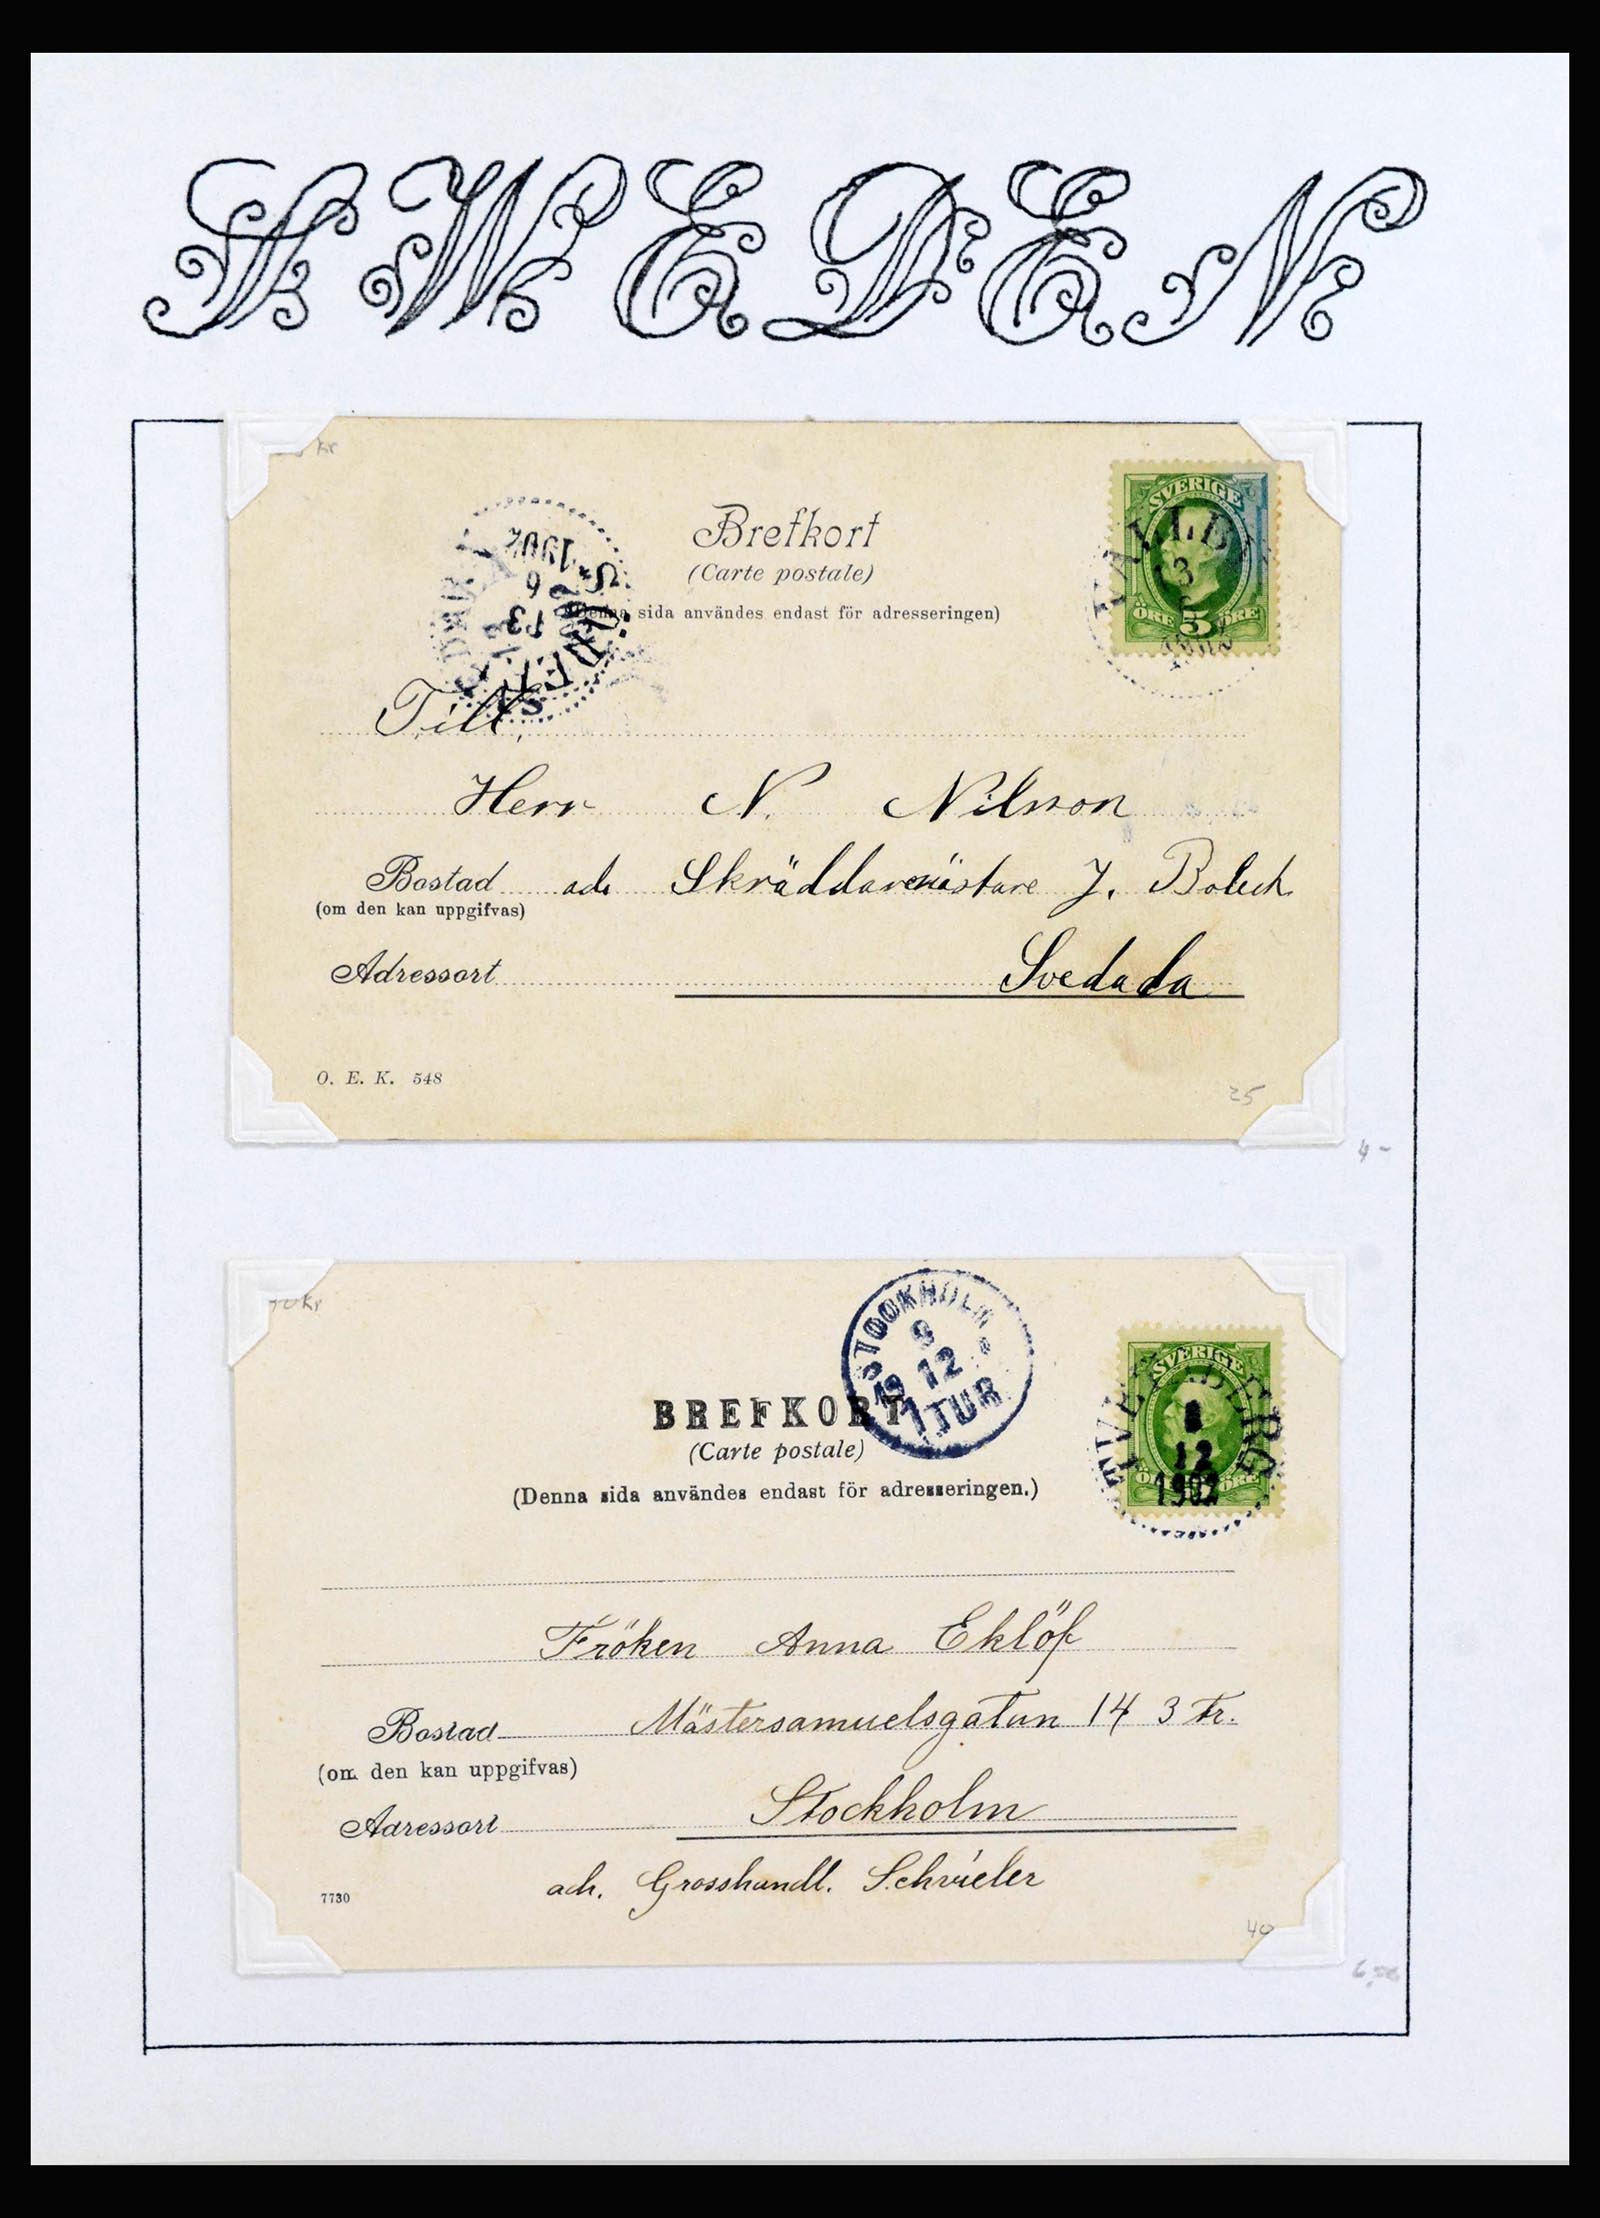 SWEDEN
kr
Brefkort
(Carte postale)
(Denna sida användes endast för adresseringen)
SVERIGE
ÖRE 5 ÖRE
13
6
Till
Herr N. Nilsson
Bostad adr Skräddaremästare J. Bolech
(om den kan uppgifvas)
Adressort Svedada
O. E. K. 548
25
4-
10 kr
STOCKHOLM
9
12
1 TUR
SVERIGE
8
12
1902
BREFKORT
(Carte postale)
(Denna sida användes endast för adresseringen.)
Fröken Anna Eklöf
Bostad Mästersamuelsgatan 14 3 tr.
(om den kan uppgifvas)
Adressort Stockholm
adr. Grosshandl. Schrieler
7730
40